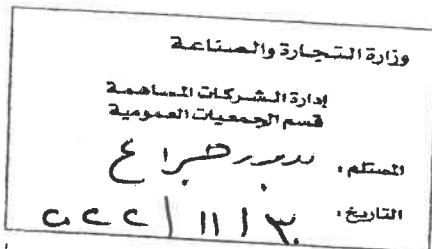 وزارة التجارة والصناعة
إدارة الشركات المساهمة
قسم الجمعيات العمومية
المستلم:
التاريخ: ٢٠٢٢/١١/٣٠